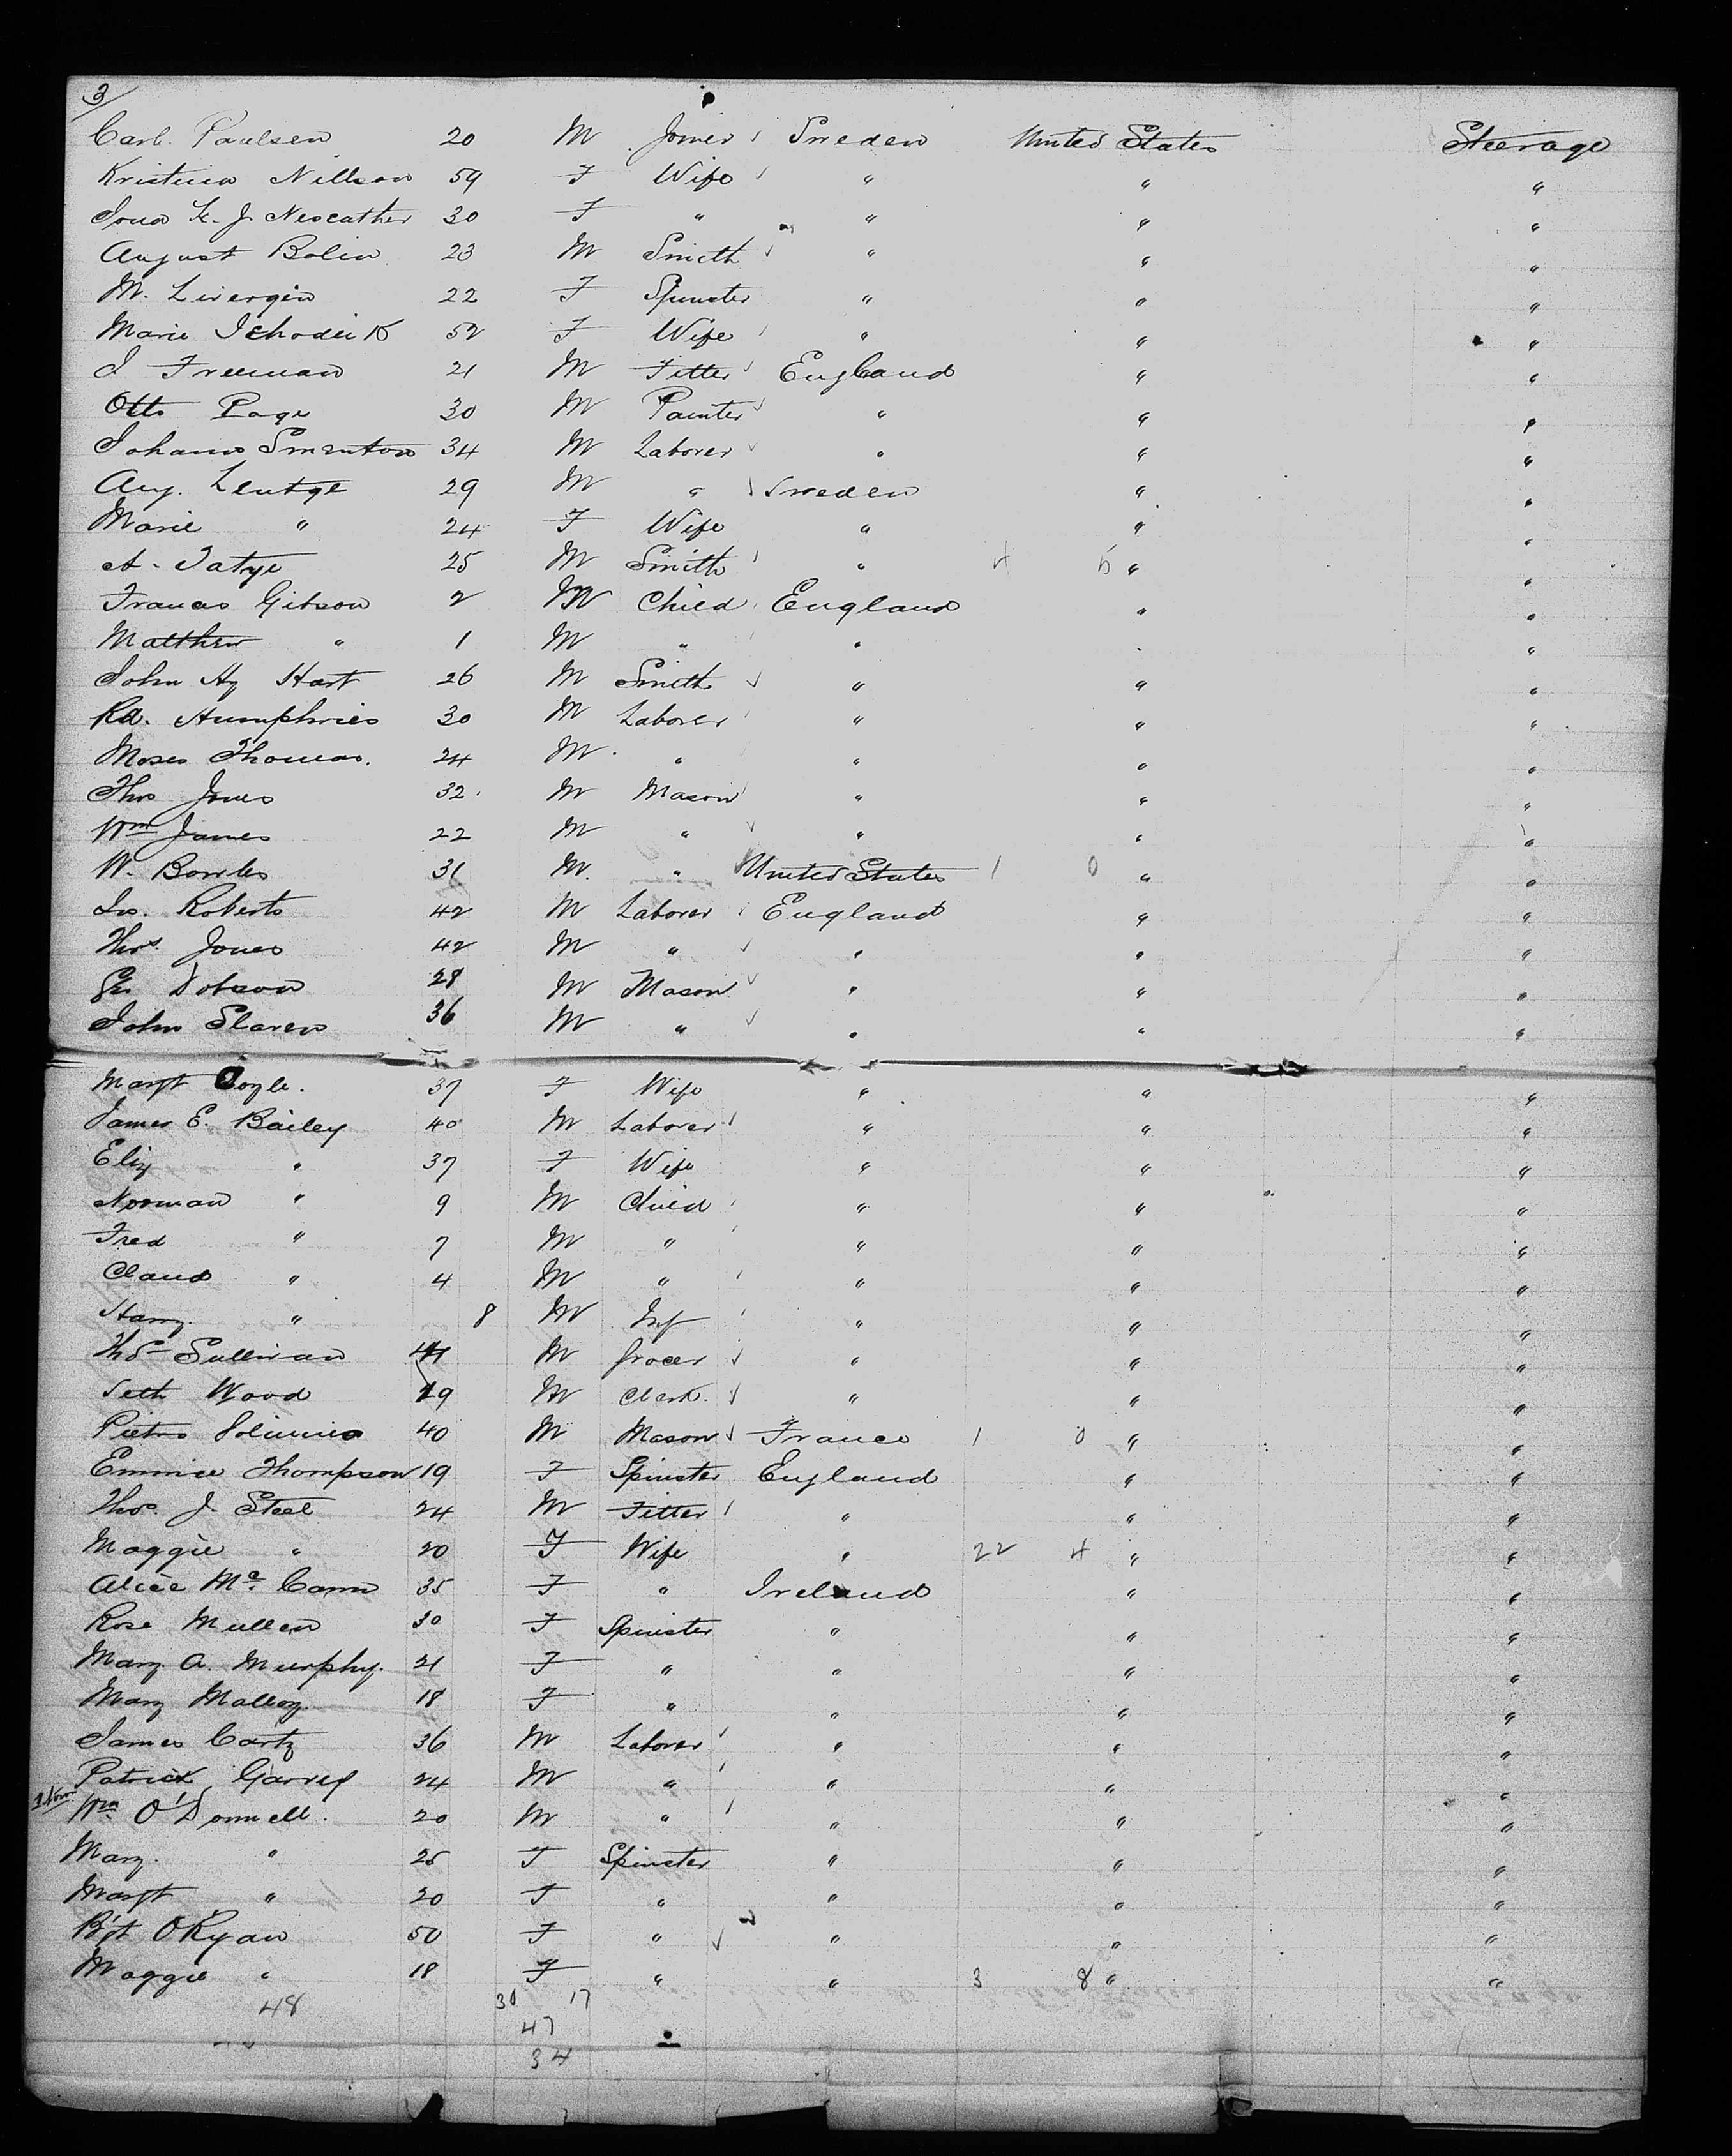 3/
Carl. Paulsen 20 M Joiner Sweden United States Steerage
Kristina Nillson 59 F Wife " " "
30 F " " " "
August Bolin 23 M Smith " " "
M. Livergin 22 F Spinster " " "
Marie 52 F Wife " " "
J Freeman 21 M Fitter England " "
Otto Page 30 M Painter " " "
Johann 34 M Laborer " " "
Aug. Leutge 29 M " Sweden " "
Marie " 24 F Wife " " "
A. Tatge 25 M Smith " 4 6 " "
Frances Gibson 2 M Child England " "
Matthew " 1 M " " " "
John Hy Hart 26 M Smith " " "
Rd. Humphries 30 M Laborer " " "
Moses Thomas. 24 M " " " "
Thos Jones 32 M Mason " " "
Wm James 22 M " " " "
W. Bowles 31 M. " United States 1 0 " "
Jno. Roberts 42 M Laborer England " "
Thos. Jones 42 M " " " "
Geo Dobson 28 M Mason " " "
John Slaven 36 M " " " "
Margt Doyle. 37 F Wife " " "
James E. Bailey 40 M Laborer " " "
Eliz " 37 F Wife " " "
Norman " 9 M Child " " "
Fred " 7 M " " " "
Claud " 4 M " " " "
Harry. " 8 M Inf " " "
Thos Sullivan M Grocer " " "
Seth Wood 19 M Clerk. " " "
Pietro 40 M Mason France 1 0 " "
Emmie Thompson 19 F Spinster England " "
Thos. J. Steel 24 M Fitter " " "
Maggie " 20 F Wife " 22 4 " "
Alice Mc. Cann 35 F " Ireland " "
Rose Mullen 30 F Spinster " " "
Mary. A. Murphy. 21 F " " " "
Mary Malloy. 18 F " " " "
James Carty 36 M Laborer " " "
Patrick Garvey 24 M " " " "
Wm O'Donnell. 20 M " " " "
Mary. " 25 F Spinster " " "
Margt " 20 F " " " "
Bgt O'Ryan 50 F " " " "
Maggie " 18 F " " 3 8 " "
48 30 17
47
34